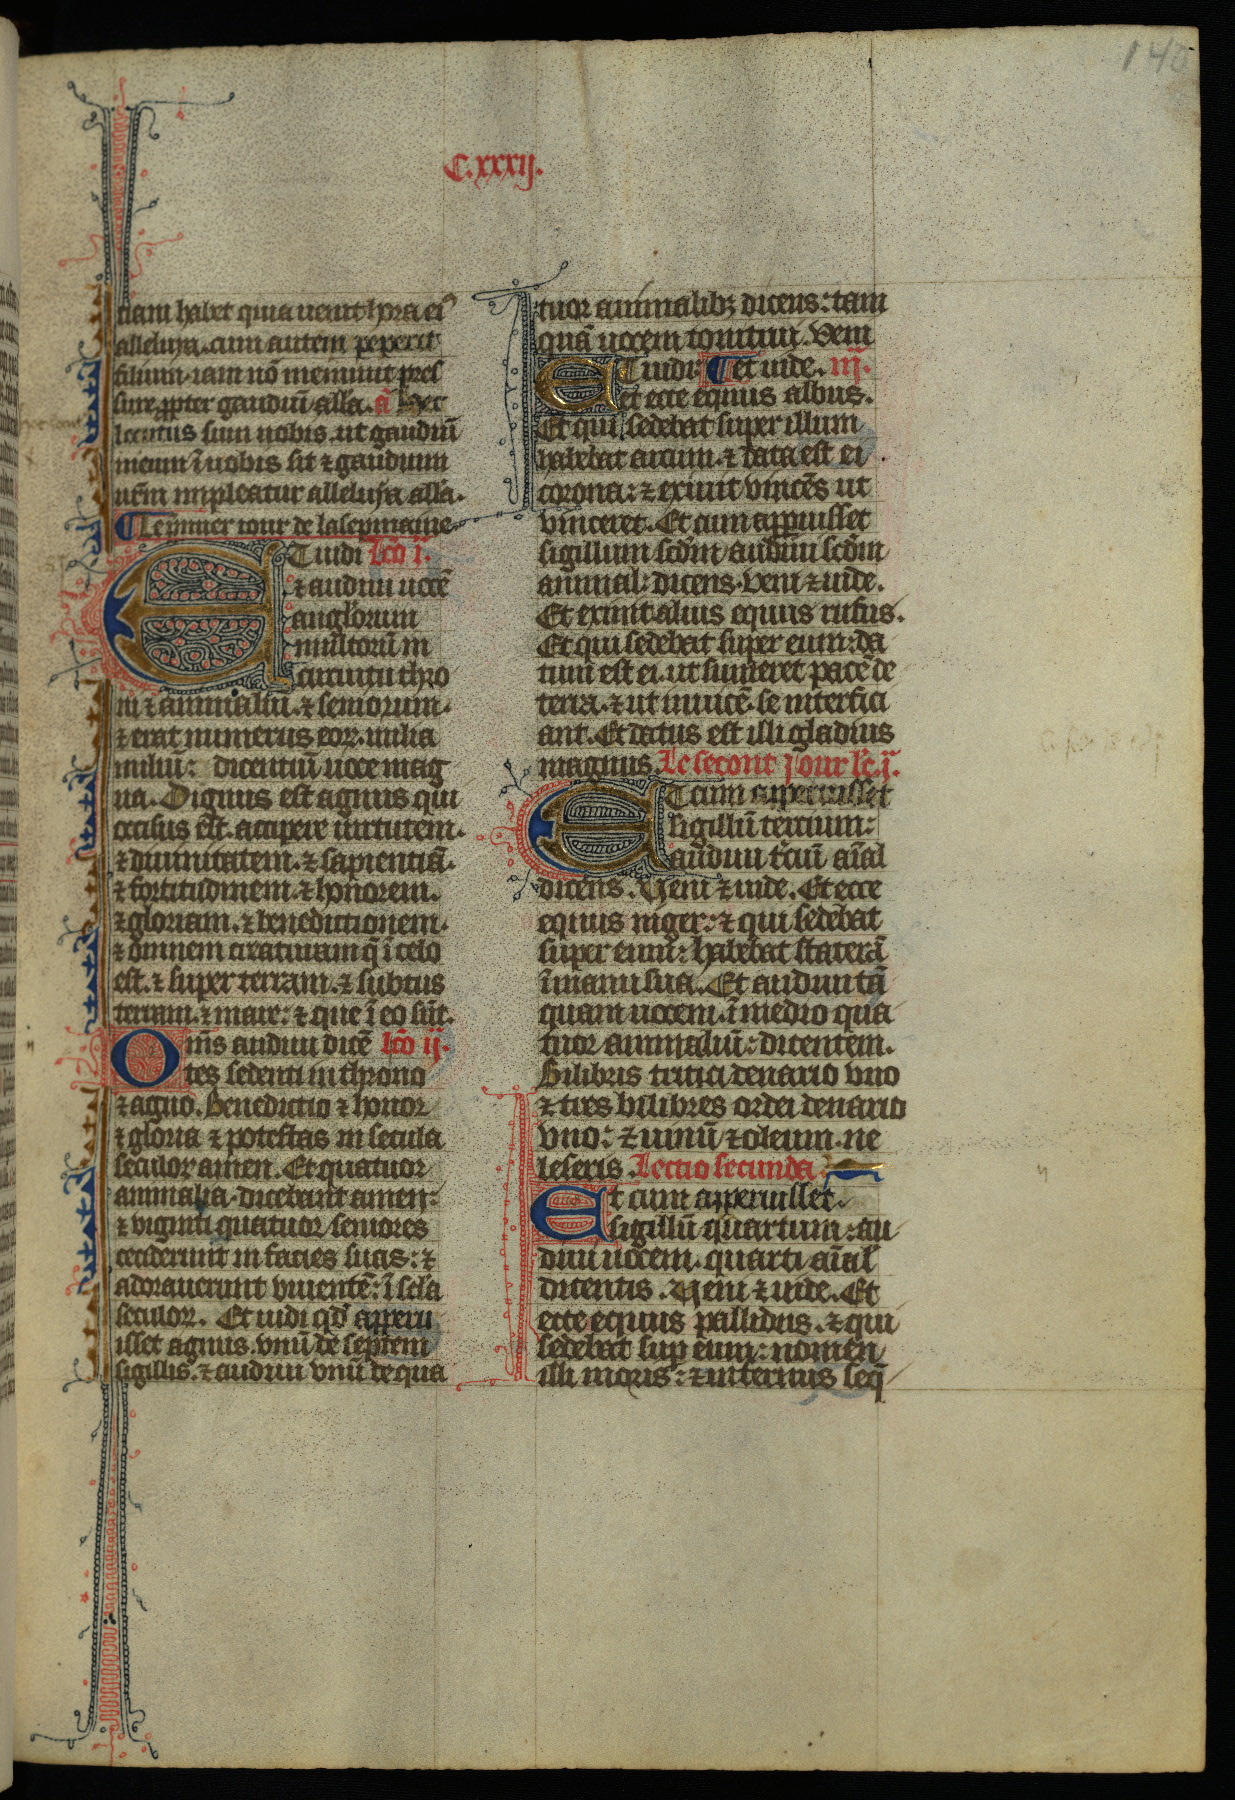 140
C.xxxij.
ciam habet quia uenit hora eiꝰ
alleluya. cum autem pepererit
filium. iam nō meminit pres
sure. ꝓpter gaudiū alla. ā hec
locutus sum uobis. ut gaudiū
meum ī uobis sit ⁊ gaudium
ur̄m impleatur alleluya alla.
Le pmier iour de la sepmaine
ET uidi Lc̄o i.
⁊ audiui uocē
anglorum
multorū in
circuitu thro
ni ⁊ animaliū. ⁊ seniorum.
⁊ erat numerus eoꝝ. milia
miliū: dicentiū uoce mag
na. Dignus est agnus qui
occisus est. accipere uirtutem.
⁊ diuinitatem. ⁊ sapientiā.
⁊ fortitudinem. ⁊ honorem.
⁊ gloriam. ⁊ benedictionem.
⁊ omnem creaturam q̄ ī celo
est. ⁊ super terram. ⁊ subtus
terram. ⁊ mare: ⁊ que ī eo sūt.
Om̄s audiui dicē Lc̄o ij.
tes sedenti in throno
⁊ agno. Benedictio ⁊ honor
⁊ gloria ⁊ potestas in secula
seculoꝝ amen. Et quatuor
animalia. dicebant amen:
⁊ viginti quatuor seniores
ceciderunt in facies suas: ⁊
adorauerunt viuentē: ī scła
seculoꝝ. Et uidi qd̓ apperu
isset agnus. vnū de septem
sigillis. ⁊ audiui vnū de qua
tuor animalibꝫ dicens: tam
quā uocem tonitrui. Veni
ET uidi: et uide. iij.
et ecce equus albus.
Et qui sedebat super illum
habebat arcum. ⁊ data est ei
corona: ⁊ exiuit vincēs ut
vinceret. Et cum apperuisset
sigillum scd̄m audiui scd̄m
animal: dicens. veni ⁊ uide.
Et exiuit alius equus rufus.
Et qui sedebat super eum: da
tum est ei. ut sumeret pacē de
terra. ⁊ ut inuicē. se interfici
ant. Et datus est illi gladius
magnus. Le secont jour lc̄. i.
ET cum apperuisset
sigillū tercium:
audiui t̓ciū aīal
dicens. Veni ⁊ uide. Et ecce
equus niger: ⁊ qui sedebat
super eum: habebat staterā
ī manu sua. Et audiui tā
quam uocem. ī medio qua
tuor animaliū: dicentem.
Bilibris tritici denario vno
⁊ tres bilibres ordei denario
vno: ⁊ uinū ⁊ oleum. ne
leseris. Lectio secunda.
Et cum apperuisset.
sigillū quartum: au
diui uocem. quarti aīal
dicentis. Veni ⁊ uide. Et
ecce equus pallidus. ⁊ qui
sedebat sup eum: nomen
illi moris: ⁊ infernus seq̄